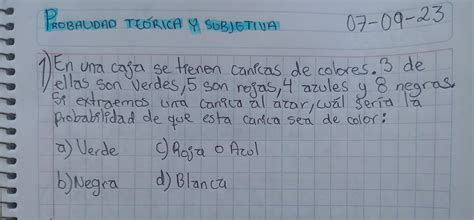 PROBALIDAD TEÓRICA Y SUBJETIVA 07-09-23
1) En una caja se tienen canicas de colores. 3 de
ellas son verdes, 5 son rojas, 4 azules y 8 negras
Si extraemos una canica al azar, cuál sería la
probabilidad de que esta canica sea de color:
a) Verde c) Roja o Azul
b) Negra d) Blanca